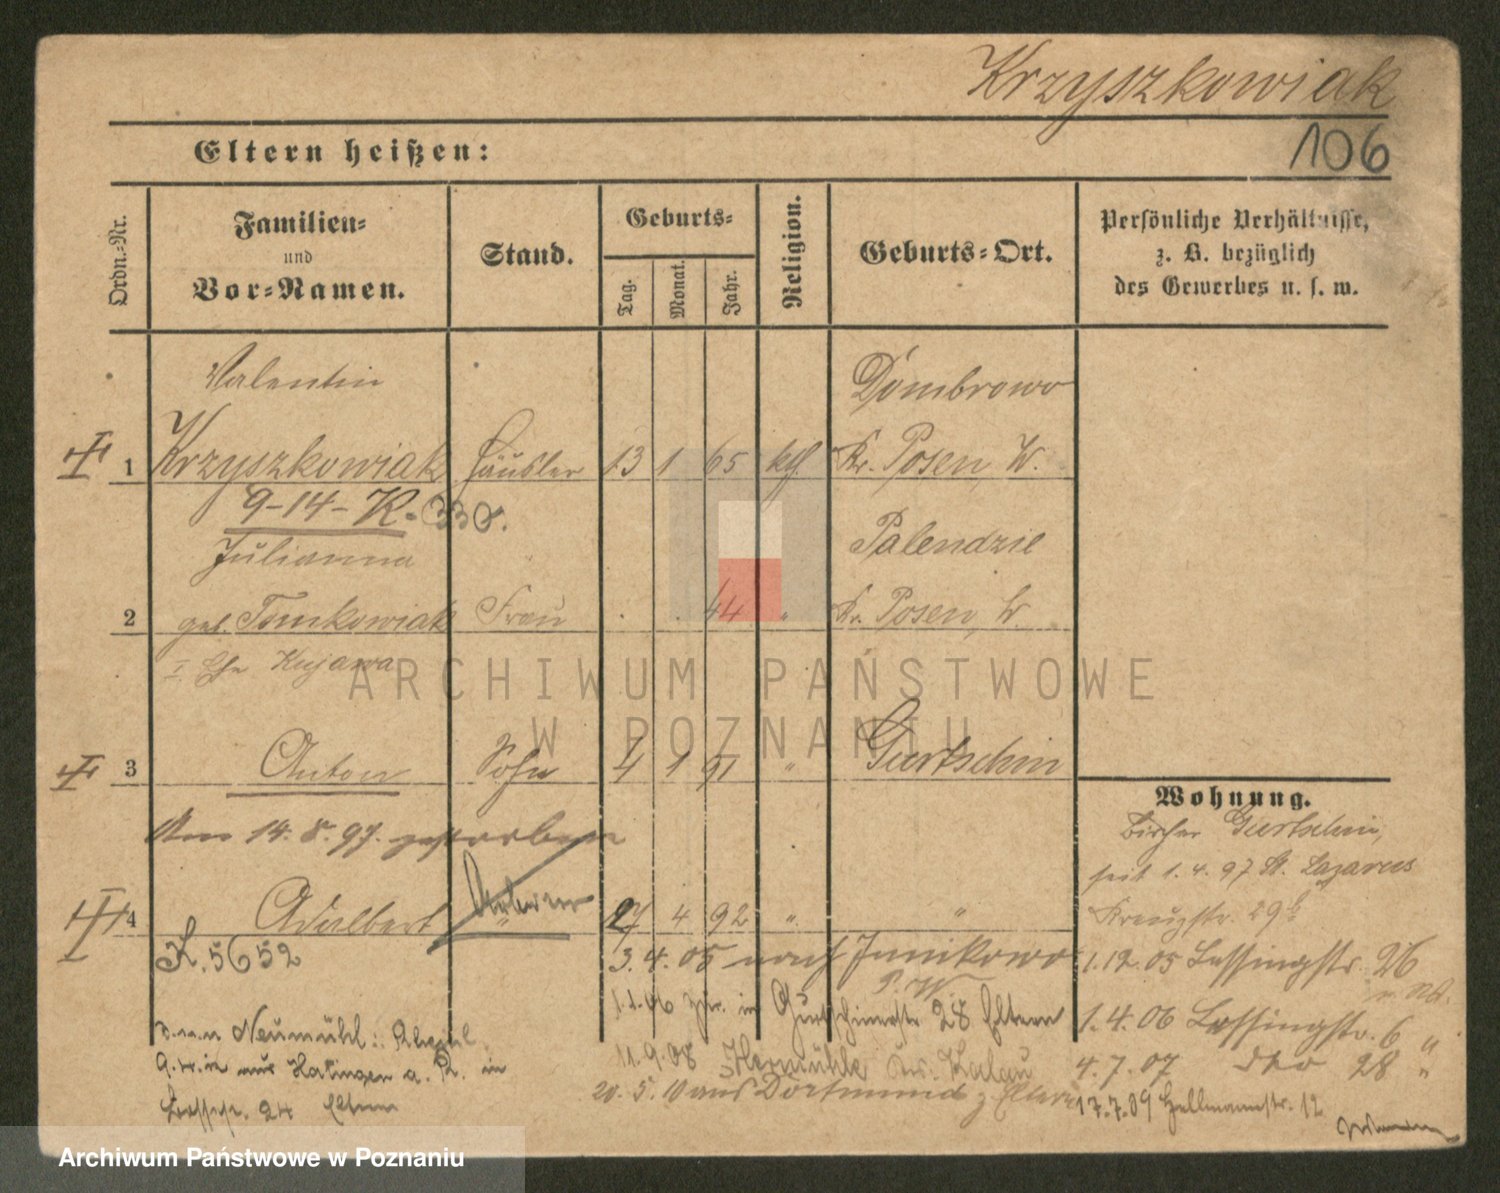 Krzyszkowiak
106
Eltern heißen:
Ordn.-Nr.
Familien-
und
Vor-Namen.
Stand.
Geburts-
Tag.
Monat.
Jahr.
Religion.
Geburts-Ort.
Persönliche Verhältnisse,
z. B. bezüglich
des Gewerbes u. s. w.
Valentin
Dombrowo
1 Krzyszkowiak Häusler 13 1 65 kth. Kr. Posen, W.
9-14-K. 330.
Julianna
Palendzie
2 geb. Tomkowiak Frau 44 " Kr. Posen, W.
I Ehe Kujawa
3 Anton Sohn 4 1 91 " Gurtschin
Am 14. 8. 97. gestorben
4 Adalbert " 27 4 92 " "
K. 5652
3. 4. 05 nach Junikowo
P. W.
1.1.06 zur. in Gurtschinerstr 28 Eltern
11.9.08
20. 5. 10 aus Dortmund z. Eltern
Neumühl
aus Hatingen a. R. in
24 Eltern
Wohnung.
Bisher Gurtschin,
seit 1. 4. 97 St. Lazarus
Kreuzstr. 29b
1.12.05 Lessingstr. 26
1. 4. 06 Lessingstr. 6 "
4. 7. 07 dto 28 "
17.7.09 Hellmannstr. 12
ARCHIWUM PAŃSTWOWE
W POZNANIU
Archiwum Państwowe w Poznaniu